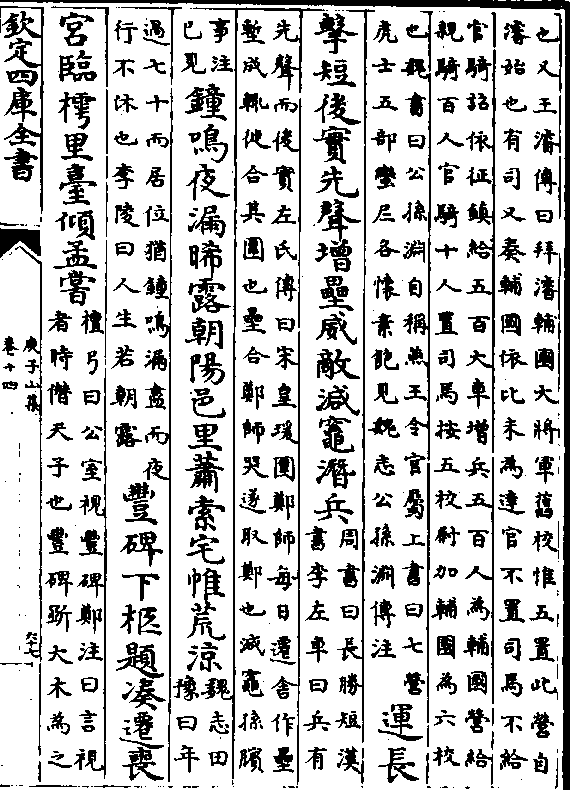 也又王濬傳曰拜濬輔國大將軍舊校惟五置此營自
濬始也有司又奏輔國依比未為達官不置司馬不給
官騎詔依征鎮給五百大車增兵五百人為輔國營給
親騎百人官騎十人置司馬按五校尉加輔國為六校
也魏書曰公孫淵自稱燕王令官屬上書曰七營
虎士五部蠻尼各懷素飽見魏志公孫淵傳注
運長
擊短後實先聲增壘威敵減竈潛兵
周書曰長勝短漢
書李左車曰兵有
先聲而後實左氏傳曰宋皇瑗圍鄭師每日遷舍作壘
塹成輒徙合其圍也壘合鄭師哭遂取鄭也減竈孫臏
事注
已見
鐘鳴夜漏晞露朝陽邑里蕭索宅帷荒涼
魏志田
豫曰年
過七十而居位猶鐘鳴漏盡而夜
行不休也李陵曰人生若朝露
豐碑下柩題凑遷喪
宮臨樗里臺傾孟嘗
檀弓曰公室視豐碑鄭注曰言視
者時僭天子也豐碑斲大木為之
欽定四庫全書
庾子山集
卷十四
六十七